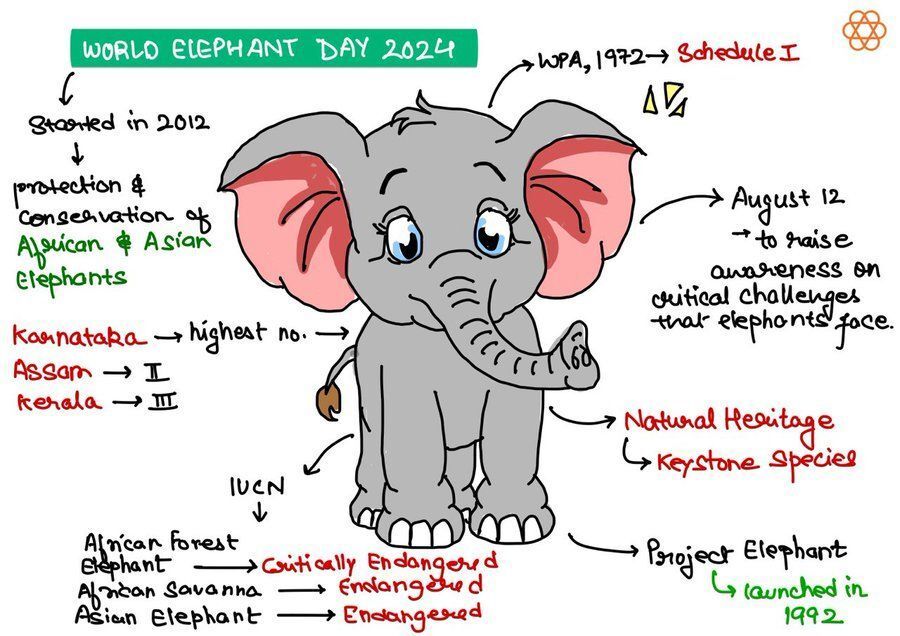 WORLD ELEPHANT DAY 2024
WPA, 1972 → Schedule I
Started in 2012
protection &
conservation of
African & Asian
Elephants
August 12
→ to raise
awareness on
critical challenges
that elephants face.
Karnataka → highest no. →
Assam → II
Kerala → III
Natural Heritage
Keystone Species
IUCN
African Forest
Elephant → Critically Endangered
African Savanna → Endangered
Asian Elephant → Endangered
Project Elephant
launched in
1992